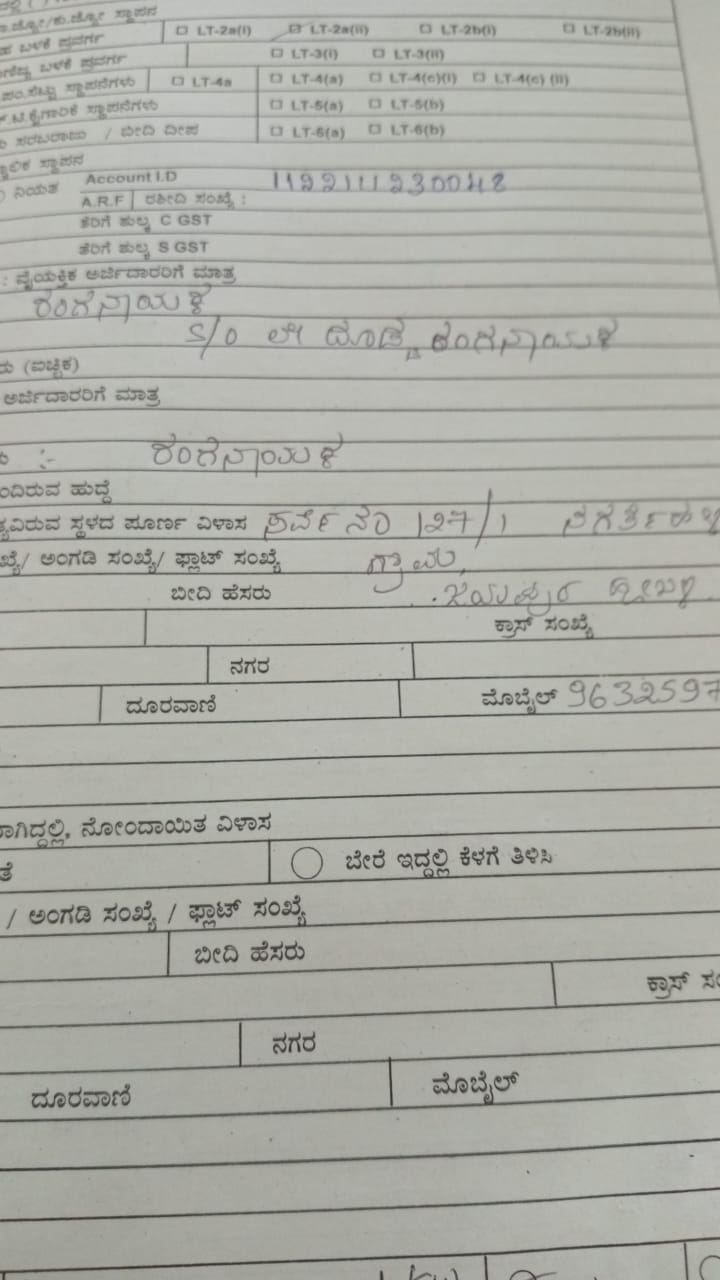 ಬಳಕೆ ಪ್ರವರ್ಗ ☐ LT-2a(i) ☑ LT-2a(ii) ☐ LT-2b(i) ☐ LT-2b(ii)
ಬಳಕೆ ಪ್ರವರ್ಗ ☐ LT-3(i) ☐ LT-3(ii)
ಪಂ.ಸೆಟ್ಟು ಸ್ಥಾಪನೆಗಳು ☐ LT-4a ☐ LT-4(a) ☐ LT-4(c)(i) ☐ LT-4(c) (ii)
ಕೈಗಾರಿಕೆ ಸ್ಥಾಪನೆಗಳು ☐ LT-5(a) ☐ LT-5(b)
ಸರಬರಾಜು / ಬೀದಿ ದೀಪ ☐ LT-6(a) ☐ LT-6(b)
ಸ್ಥಾಪನ
ನಿಯತ Account I.D 1122111230048
A.R.F ರಶೀದಿ ಸಂಖ್ಯೆ :
ತೆರಿಗೆ ಶುಲ್ಕ C GST
ತೆರಿಗೆ ಶುಲ್ಕ S GST
: ವೈಯಕ್ತಿಕ ಅರ್ಜಿದಾರರಿಗೆ ಮಾತ್ರ
ರಂಗನಾಯಕ
S/O ಲೇ ದೊಡ್ಡ ರಂಗನಾಯಕ
ರು (ಐಚ್ಛಿಕ)
ಅರ್ಜಿದಾರರಿಗೆ ಮಾತ್ರ
:- ರಂಗನಾಯಕ
ಂದಿರುವ ಹುದ್ದೆ
್ಯವಿರುವ ಸ್ಥಳದ ಪೂರ್ಣ ವಿಳಾಸ ಸರ್ವೆ ನಂ 127/1
ಖ್ಯೆ/ ಅಂಗಡಿ ಸಂಖ್ಯೆ/ ಫ್ಲಾಟ್ ಸಂಖ್ಯೆ ಗ್ರಾಮ,
ಬೀದಿ ಹೆಸರು ಜಯಪುರ ಹೋಬಳಿ
ಕ್ರಾಸ್ ಸಂಖ್ಯೆ
ನಗರ
ದೂರವಾಣಿ ಮೊಬೈಲ್ 9632597
ರಾಗಿದ್ದಲ್ಲಿ, ನೋಂದಾಯಿತ ವಿಳಾಸ
ತೆ ಬೇರೆ ಇದ್ದಲ್ಲಿ ಕೆಳಗೆ ತಿಳಿಸಿ
/ ಅಂಗಡಿ ಸಂಖ್ಯೆ / ಫ್ಲಾಟ್ ಸಂಖ್ಯೆ
ಬೀದಿ ಹೆಸರು
ಕ್ರಾಸ್ ಸಂ
ನಗರ
ದೂರವಾಣಿ ಮೊಬೈಲ್